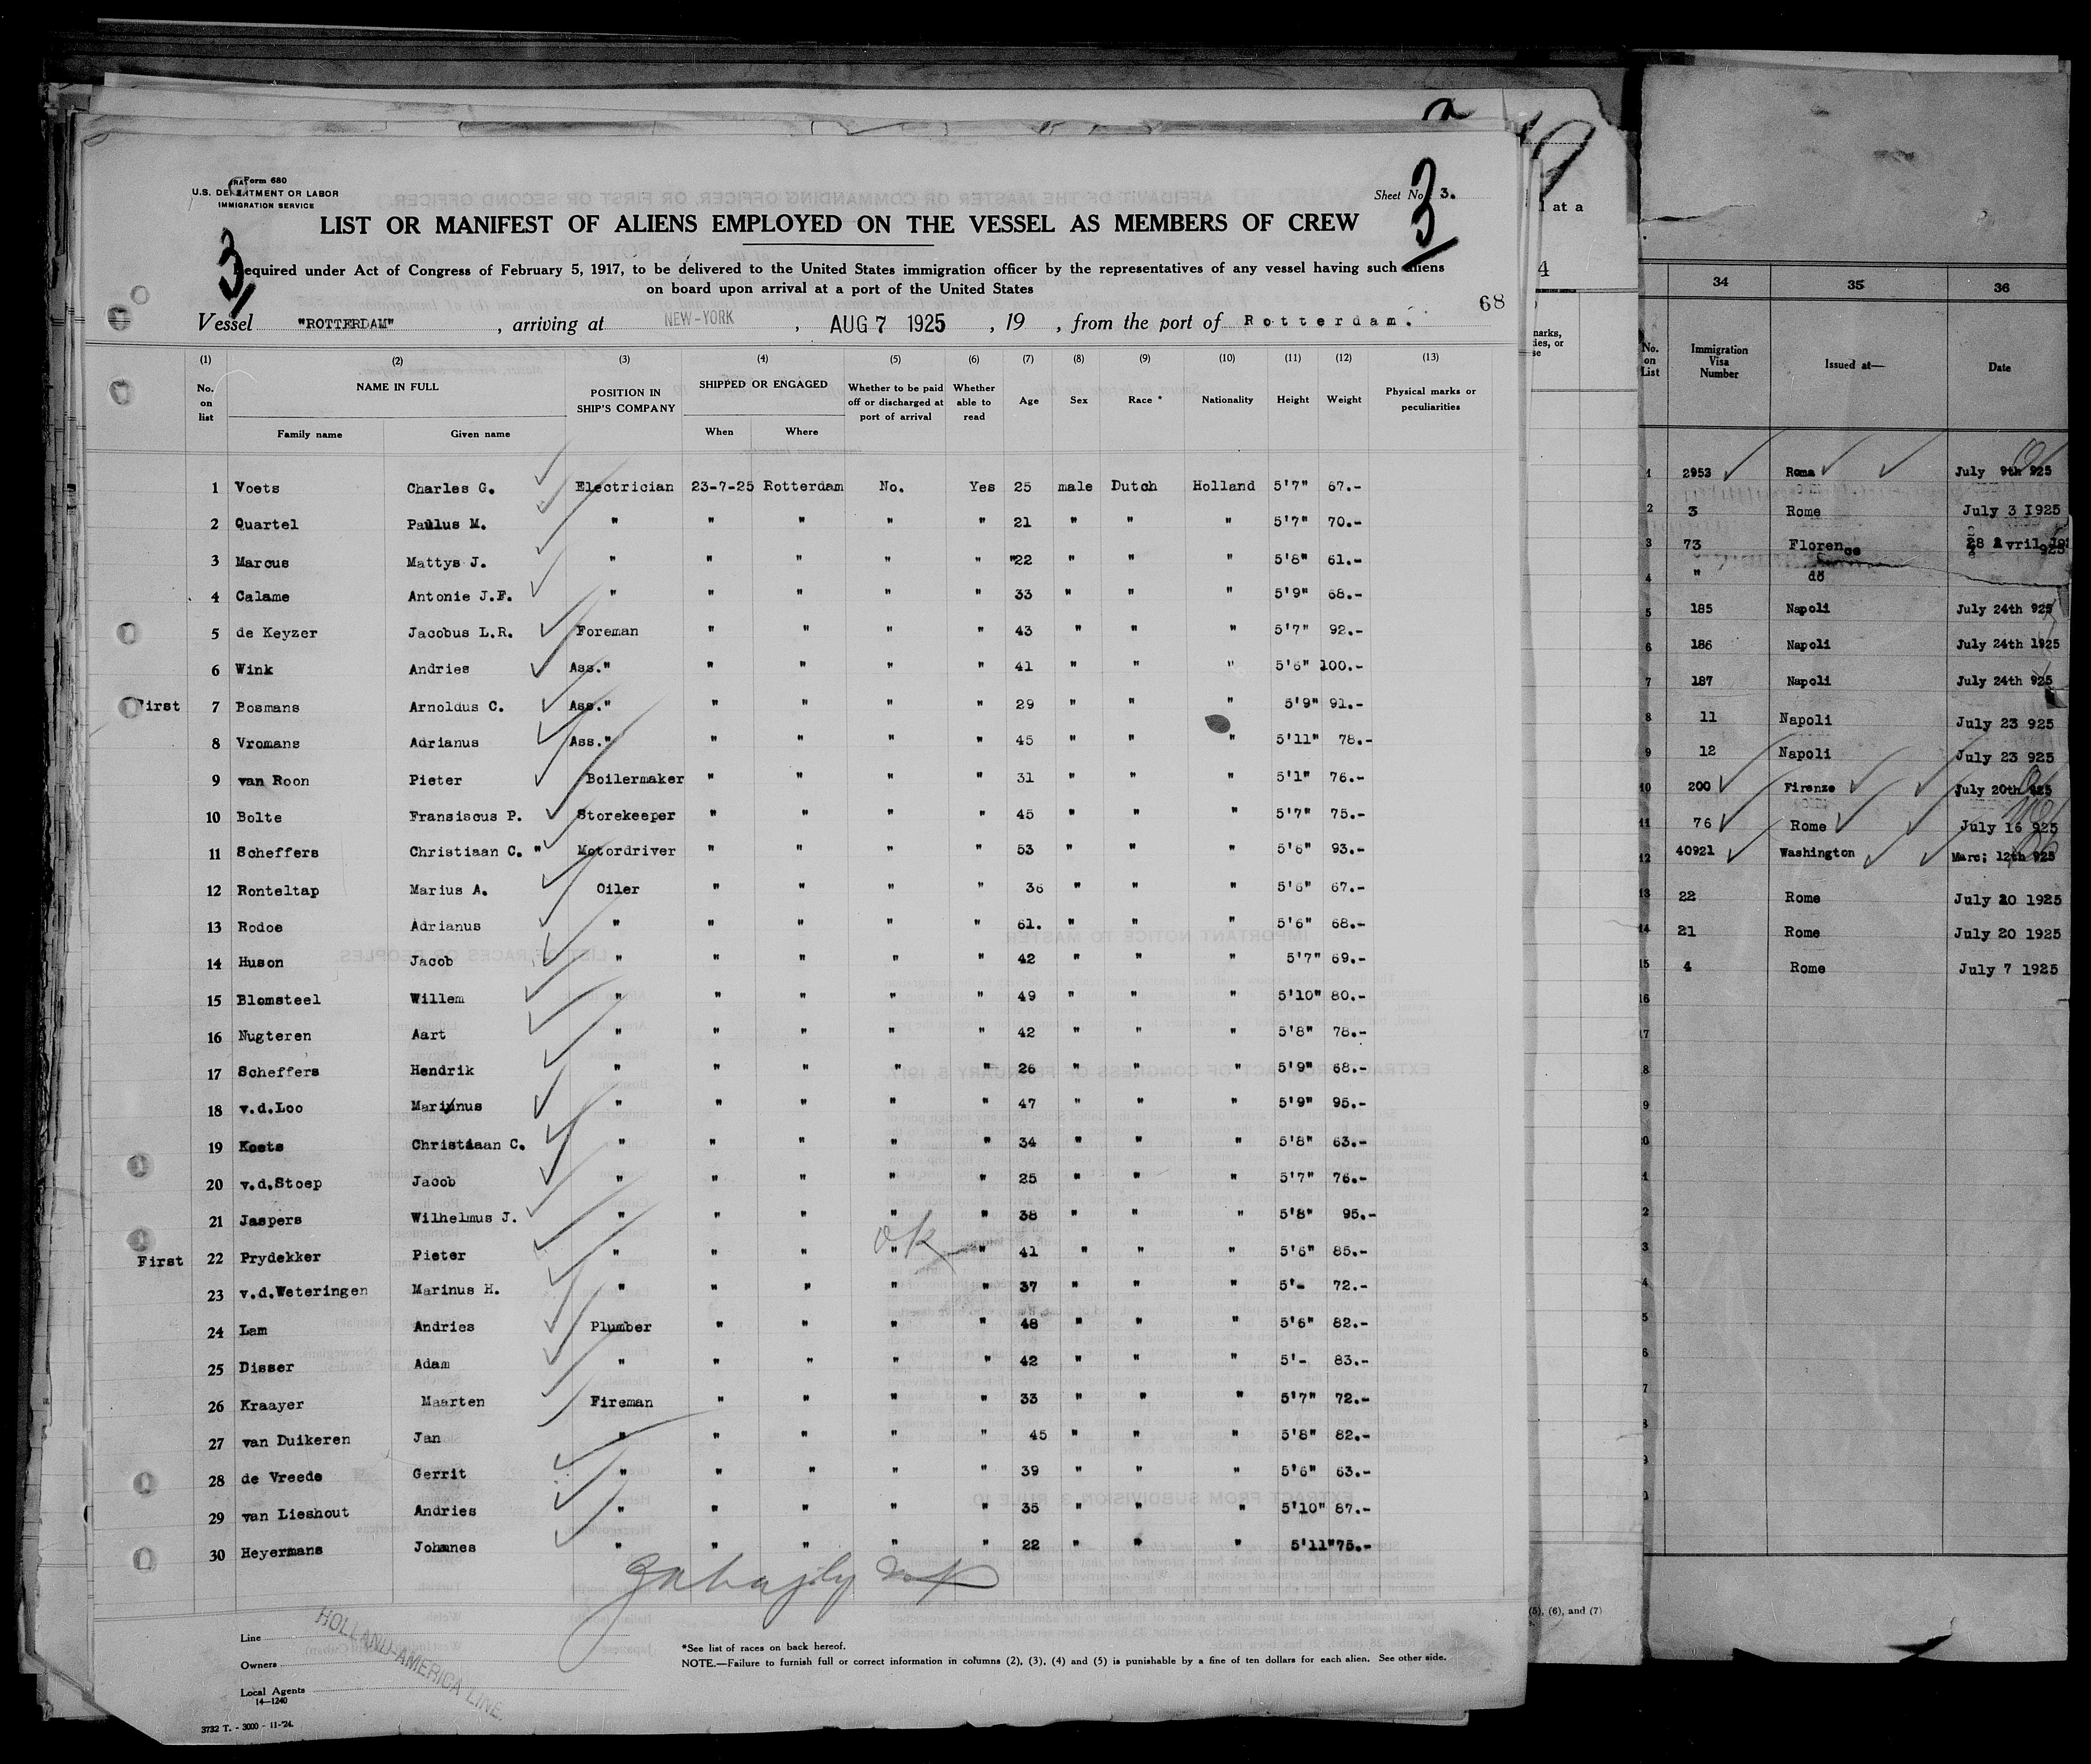 Form 680
U.S. DEPARTMENT OR LABOR
IMMIGRATION SERVICE
Sheet No. 3.
3
3
LIST OR MANIFEST OF ALIENS EMPLOYED ON THE VESSEL AS MEMBERS OF CREW
Required under Act of Congress of February 5, 1917, to be delivered to the United States immigration officer by the representatives of any vessel having such aliens
on board upon arrival at a port of the United States
68
Vessel "ROTTERDAM", arriving at NEW-YORK, AUG 7 1925, 19 , from the port of Rotterdam.
(1) (2) (3) (4) (5) (6) (7) (8) (9) (10) (11) (12) (13)
No. on list NAME IN FULL Family name Given name POSITION IN SHIP'S COMPANY SHIPPED OR ENGAGED When Where Whether to be paid off or discharged at port of arrival Whether able to read Age Sex Race * Nationality Height Weight Physical marks or peculiarities
1 Voets Charles G. Electrician 23-7-25 Rotterdam No. Yes 25 male Dutch Holland 5'7" 67.-
2 Quartel Paulus M. " " " " " 21 " " " 5'7" 70.-
3 Marcus Mattys J. " " " " " "22 " " " 5'8" 61.-
4 Calame Antonie J.F. " " " " " 33 " " " 5'9" 68.-
5 de Keyzer Jacobus L.R. Foreman " " " " 43 " " " 5'7" 92.-
6 Wink Andries Ass." " " " " 41 " " " 5'6" 100.-
First 7 Bosmans Arnoldus C. Ass." " " " " 29 " " " 5'9" 91.-
8 Vromans Adrianus Ass." " " " " 45 " " " 5'11" 78.-
9 van Roon Pieter Boilermaker " " " " 31 " " " 5'1" 76.-
10 Bolte Fransiscus P. Storekeeper " " " " 45 " " " 5'7" 75.-
11 Scheffers Christiaan C. " Motordriver " " " " 53 " " " 5'6" 93.-
12 Ronteltap Marius A. Oiler " " " " 36 " " " 5'6" 67.-
13 Rodoe Adrianus " " " " " 61. " " " 5'6" 68.-
14 Huson Jacob " " " " " 42 " " " 5'7" 69.-
15 Blomsteel Willem " " " " " 49 " " " 5'10" 80.-
16 Nugteren Aart " " " " " 42 " " " 5'8" 78.-
17 Scheffers Hendrik " " " " " 26 " " " 5'9" 68.-
18 v.d.Loo Marinnus " " " " " 47 " " " 5'9" 95.-
19 Koets Christiaan C. " " " " " 34 " " " 5'8" 63.-
20 v.d.Stoep Jacob " " " " " 25 " " " 5'7" 76.-
21 Jaspers Wilhelmus J. " " " " " 38 " " " 5'8" 95.-
ok
First 22 Prydekker Pieter " " " " " 41 " " " 5'6" 85.-
23 v.d.Weteringen Marinus H. " " " " " 37 " " " 5'- 72.-
24 Lam Andries Plumber " " " " 48 " " " 5'6" 82.-
25 Disser Adam " " " " " 42 " " " 5'- 83.-
26 Kraayer Maarten Fireman " " " " 33 " " " 5'7" 72.-
27 van Duikeren Jan " " " " " 45 " " " 5'8" 82.-
28 de Vreede Gerrit " " " " " 39 " " " 5'6" 63.-
29 van Lieshout Andries " " " " " 35 " " " 5'10" 87.-
30 Heyermans Johanes " " " " " 22 " " " 5'11" 75.-
Line
Owners
Local Agents
HOLLAND-AMERICA LINE.
14—1240
3732 T. - 3000 - 11-'24.
*See list of races on back hereof.
NOTE.—Failure to furnish full or correct information in columns (2), (3), (4) and (5) is punishable by a fine of ten dollars for each alien. See other side.
at a
4
(5), (6), and (7)
34 35 36
No. on List Immigration Visa Number Issued at— Date
1 2953 Roma July 9th 925
2 3 Rome July 3 1925
3 73 Florence 28 Avril 925
4 " dº
5 185 Napoli July 24th 925
6 186 Napoli July 24th 1925
7 187 Napoli July 24th 925
8 11 Napoli July 23 925
9 12 Napoli July 23 925
10 200 Firenze July 20th 925
11 76 Rome July 16 925
12 40921 Washington Marc; 12th 925
13 22 Rome July 20 1925
14 21 Rome July 20 1925
15 4 Rome July 7 1925